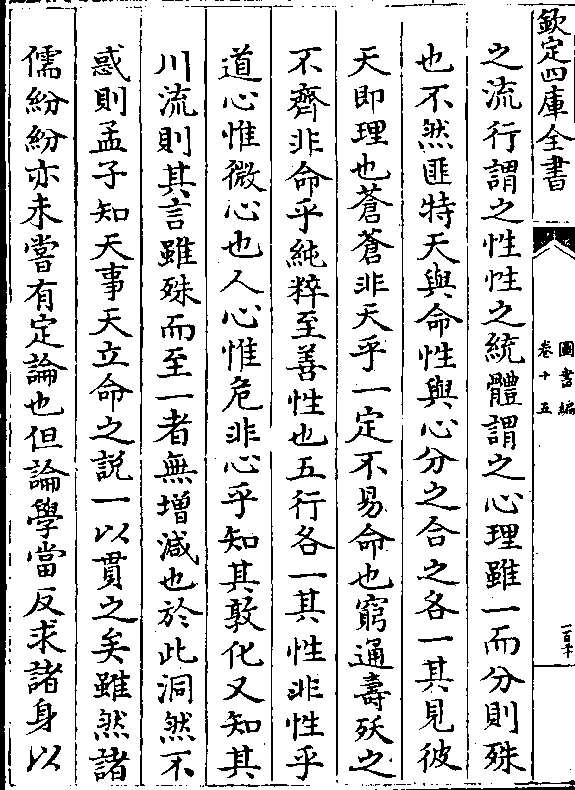 欽定四庫全書
圖書編
卷十五
之流行謂之性性之統體謂之心理雖一而分則殊
也不然匪特天與命性與心分之合之各一其見彼
天即理也蒼蒼非天乎一定不易命也窮通壽殀之
不齊非命乎純粹至善性也五行各一其性非性乎
道心惟微心也人心惟危非心乎知其敦化又知其
川流則其言雖殊而至一者無增減也於此洞然不
惑則孟子知天事天立命之說一以貫之矣雖然諸
儒紛紛亦未嘗有定論也但論學當反求諸身以